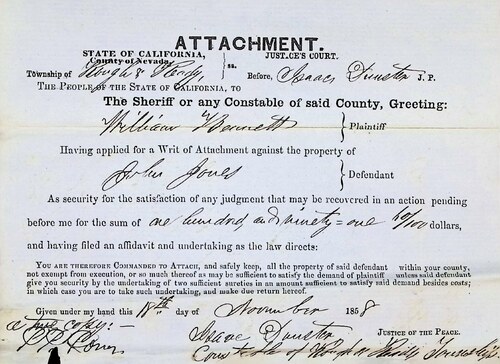 ATTACHMENT.
STATE OF CALIFORNIA, JUSTICE'S COURT.
County of Nevada, ss.
Township of Rough & Ready, Before, Isaac Dunster J. P.
THE PEOPLE OF THE STATE OF CALIFORNIA, TO
The Sheriff or any Constable of said County, Greeting:
William Bennett Plaintiff
Having applied for a Writ of Attachment against the property of
John Jones Defendant
As security for the satisfaction of any judgment that may be recovered in an action pending
before me for the sum of one hundred and ninety=one /100 dollars,
and having filed an affidavit and undertaking as the law directs:
YOU ARE THEREFORE COMMANDED TO ATTACH, and safely keep, all the property of said defendant within your county,
not exempt from execution, or so much thereof as may be sufficient to satisfy the demand of plaintiff unless said defendant
give you security by the undertaking of two sufficient sureties in an amount sufficient to satisfy said demand besides costs;
in which case you are to take such undertaking, and make due return hereof.
Given under my hand this day of November 1858
a true copy:— Isaac Dunster JUSTICE OF THE PEACE.
Constable of Rough & Ready Township